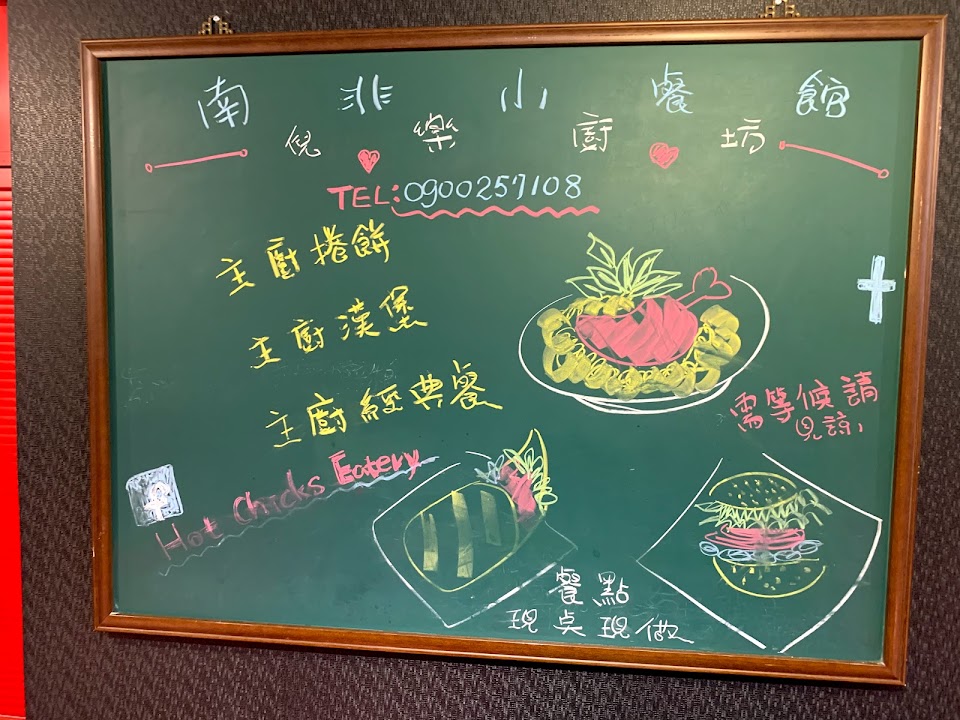 南非小餐館
倪樂廚坊
TEL:0900257108
主廚捲餅
主廚漢堡
主廚經典餐
需等候請
見諒
Hot Chicks Eatery
餐點
現点現做